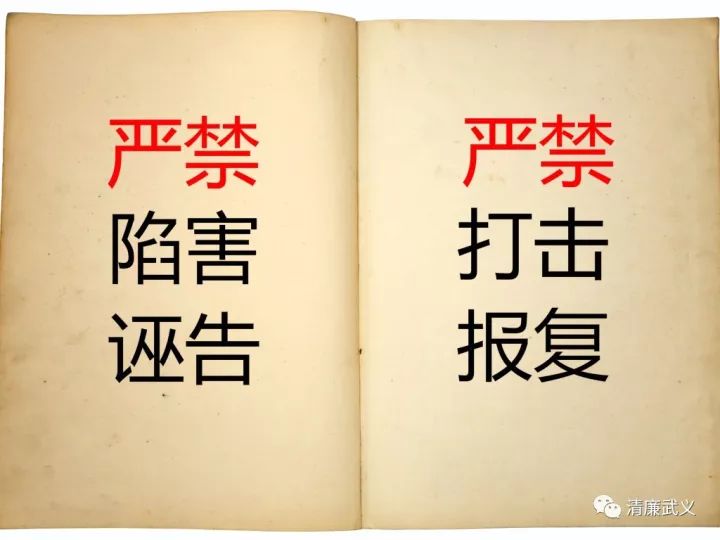 严禁
陷害
诬告
严禁
打击
报复
清廉武义